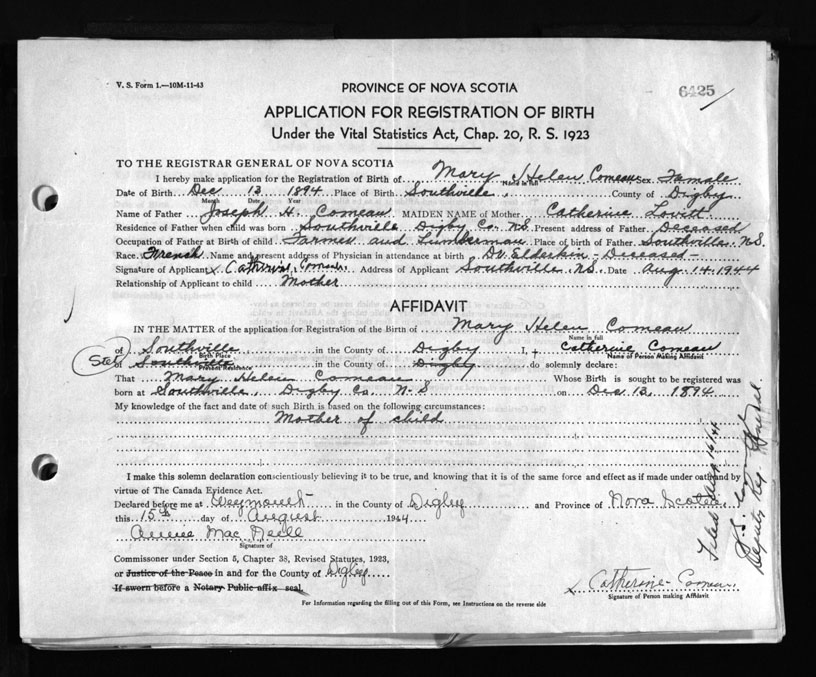 V. S. Form 1.—10M-11-43
6425
PROVINCE OF NOVA SCOTIA
APPLICATION FOR REGISTRATION OF BIRTH
Under the Vital Statistics Act, Chap. 20, R. S. 1923
TO THE REGISTRAR GENERAL OF NOVA SCOTIA
I hereby make application for the Registration of Birth of Mary Helen Comeau Sex Famale
Name in full
Date of Birth Dec 13 1894 Place of Birth Southville, County of Digby
Month Date Year
Name of Father Joseph H. Comeau MAIDEN NAME of Mother Catherine Lovitt
Residence of Father when child was born Southville Digby Co. N.S. Present address of Father Deceased
Occupation of Father at Birth of child Farmer and Lumberman Place of birth of Father Southville N.S.
Race French Name and present address of Physician in attendance at birth Dr Elderkin - Deceased -
Signature of Applicant x Catherine Comeau Address of Applicant Southville N.S. Date Aug. 14. 1944
Relationship of Applicant to child Mother
AFFIDAVIT
IN THE MATTER of the application for Registration of the Birth of Mary Helen Comeau
Name in full
of Southville, in the County of Digby I, + Catherine Comeau
Birth Place
Name of Person Making Affidavit
Stet of Southville in the County of Digby do solemnly declare:
Present Residence
That Mary Helen Comeau Whose Birth is sought to be registered was
born at Southville, Digby Co. N.S on Dec 13, 1894
My knowledge of the fact and date of such Birth is based on the following circumstances:
Mother of child
I make this solemn declaration conscientiously believing it to be true, and knowing that it is of the same force and effect as if made under oath and by
virtue of The Canada Evidence Act.
Declared before me at Weymouth in the County of Digby and Province of Nova Scotia
this 15th day of August 1944
Annie Mac Neill
Signature of
Commissioner under Section 5, Chapter 38, Revised Statutes, 1923,
or Justice of the Peace in and for the County of Digby
If sworn before a Notary Public affix seal
x Catherine Comeau
Signature of Person making Affidavit
For Information regarding the filling out of this Form, see Instructions on the reverse side
Filed Aug 16/44
Deputy Reg.